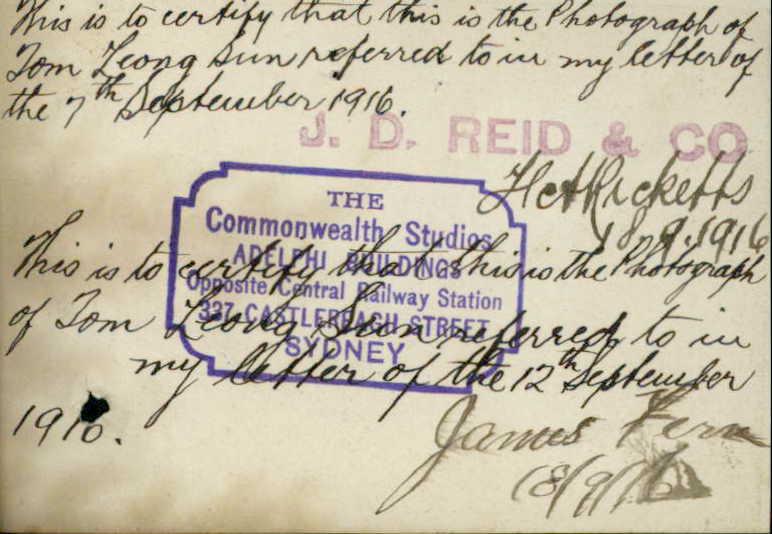 This is to certify that this is the Photograph of
Tom Leong Sun referred to in my letter of
the 7th September 1916.
J. D. REID & CO
Ricketts
18.9.1916
THE
Commonwealth Studios
ADELPHI BUILDINGS
Opposite Central Railway Station
337 CASTLEREAGH STREET
SYDNEY
This is to certify that this is the Photograph
of Tom Leong Sun referred to in
my letter of the 12th September
1916.
James Fern
18/9/16